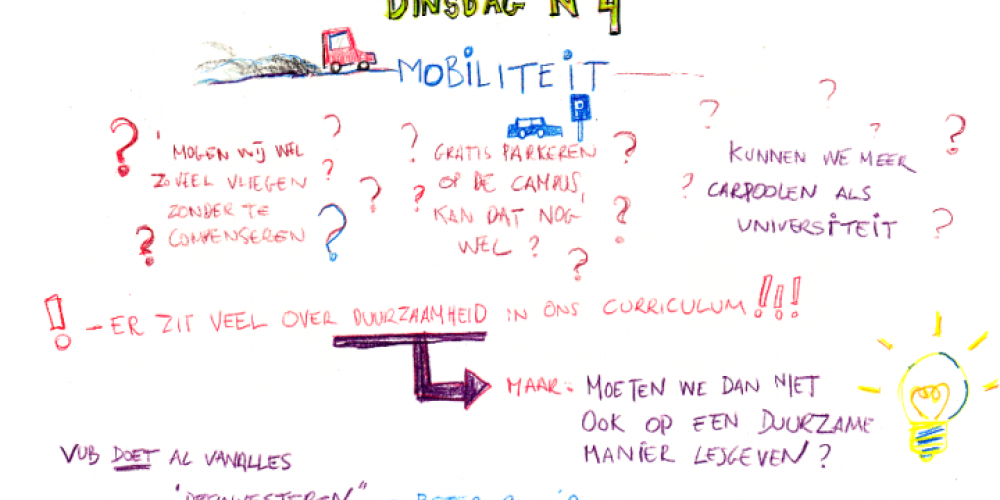 DINSDAG N 4
MOBILITEIT
P
' MOGEN WIJ WEL
ZOVEEL VLIEGEN
ZONDER TE
COMPENSEREN
? ? ? ? ? ?
GRATIS PARKEREN
OP DE CAMPUS,
KAN DAT NOG
WEL ?
? ? ? ? ?
KUNNEN WE MEER
CARPOOLEN ALS
UNIVERSITEIT
? ? ? ? ? ?
! - ER ZIT VEEL OVER DUURZAAMHEID IN ONS CURRICULUM !!!
MAAR: MOETEN WE DAN NIET
OOK OP EEN DUURZAME
MANIER LESGEVEN ?
VUB DOET AL VANALLES